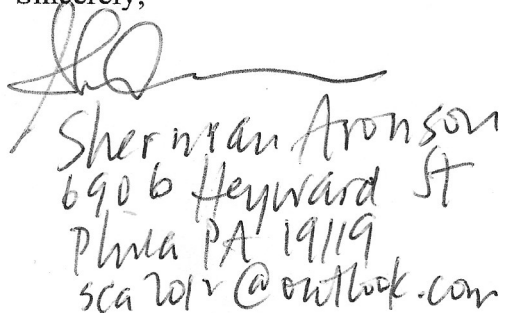 Sincerely,
Sherman Aronson
6906 Heyward St
Phila PA 19119
sca2012@outlook.com